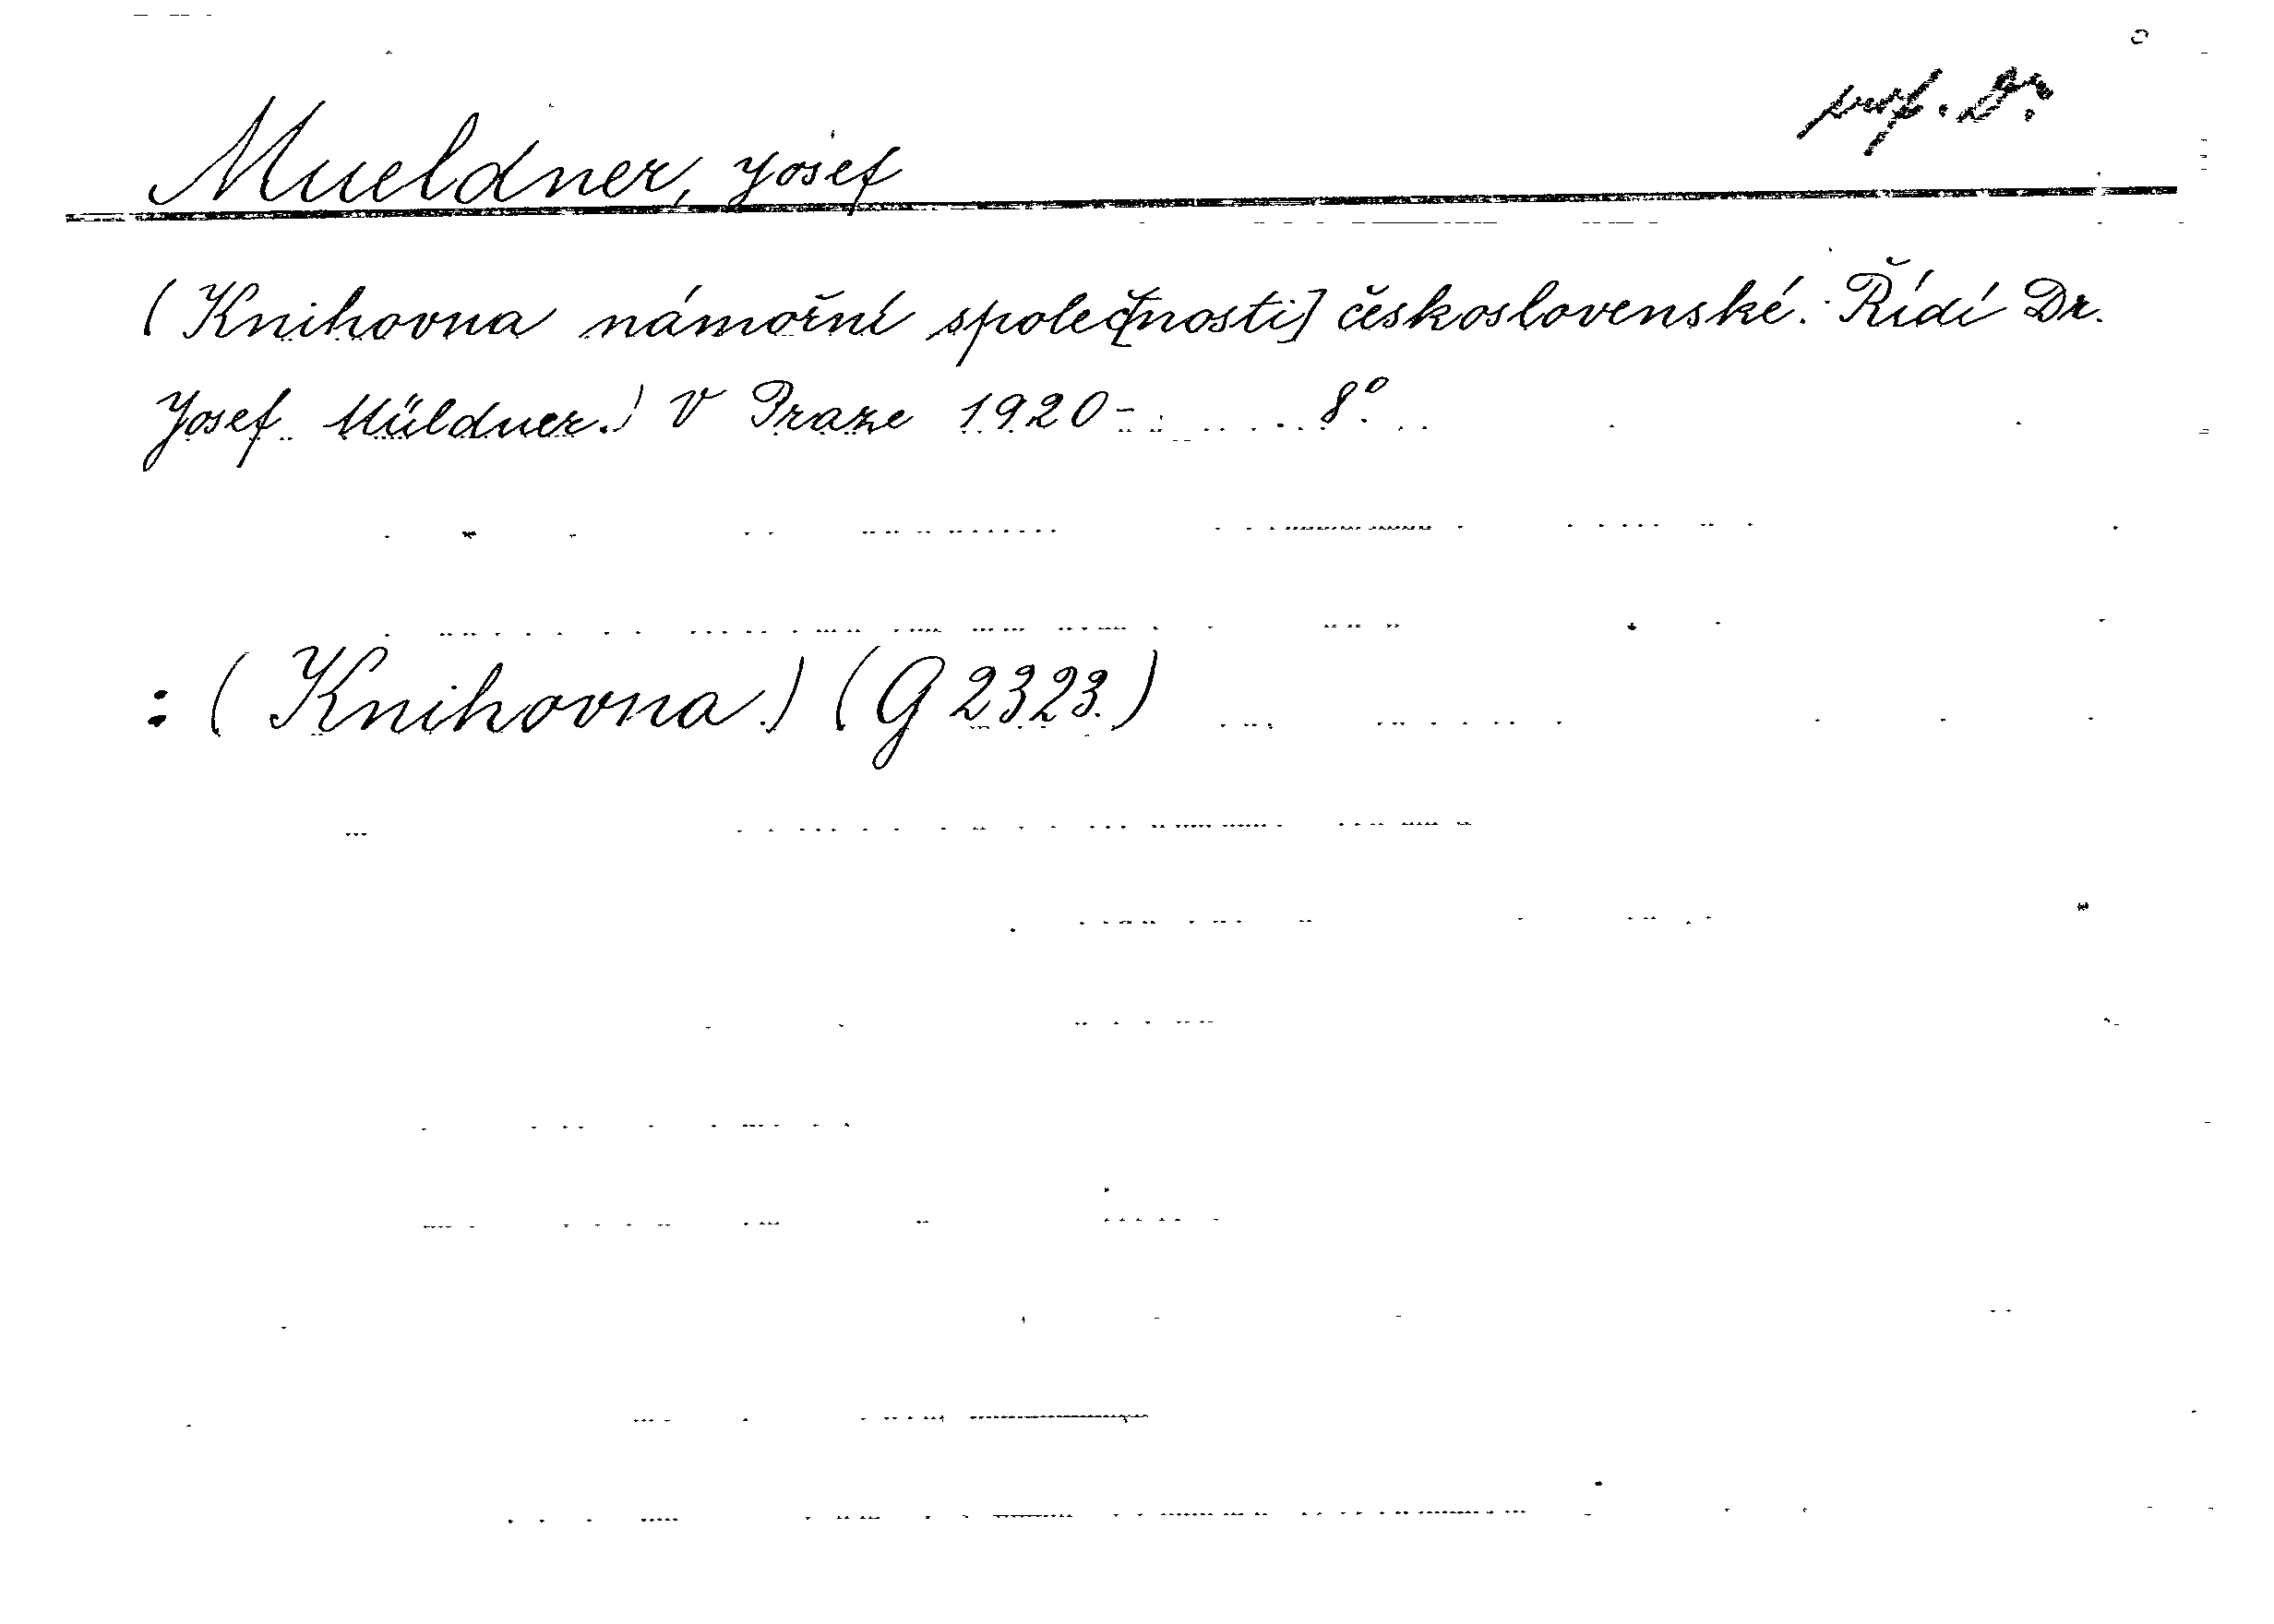 prof. Dr.
Mueldner, Josef
(Knihovna námořní společ[nosti] československé. Řídí Dr.
Josef Müldner.) V Praze 1920- 8°.
: (Knihovna.) (G 2323.)